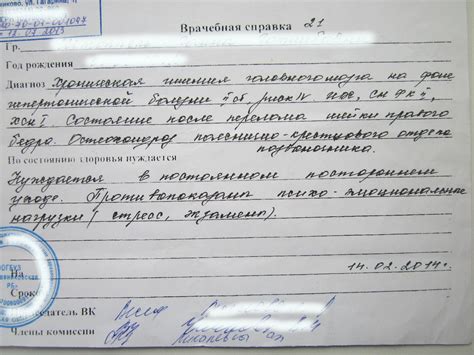 ул. Гагарина,
12.07.2013
Врачебная справка 21
Гр.
Год рождения
Диагноз Хроническая ишемия головного мозга на фоне
гипертонической болезни II ст, риск IV ИБС, сн ФК II,
ХСН I. Состояние после перелома шейки правого
бедра. Остеохондроз пояснично-крестцового отдела
позвоночника.
По состоянию здоровья нуждается
Нуждается в постоянном постороннем
уходе. Противопоказаны психо-эмоциональные
нагрузки (стресс, экзамены).
На
14.02.2014г.
Срок
датель ВК
Члены комиссии